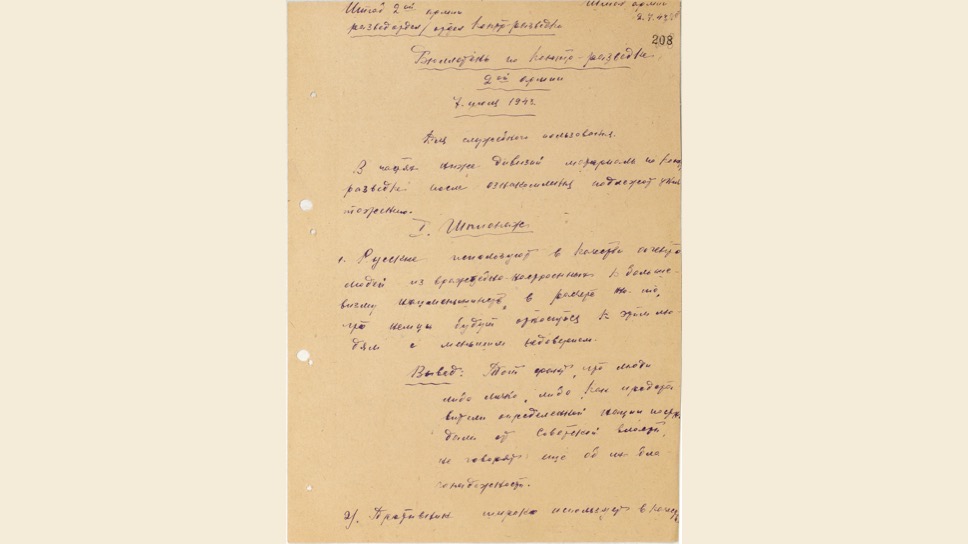 Штаб 2ой армии
Штаб армии
разведотдел/ отдел контрразведки
2.7.43
208
Бюллетень по контр-разведке
2ой армии
7. июля 1943
Для служебного пользования.
В частях ниже дивизий материал по контр
разведке после ознакомления подлежит уничтожению.
I. Шпионаж.
1. Русские используют в качестве агентов
людей из враждебно-настроенных к больше-
визму нацменьшинств, в расчете на то,
что немцы будут относиться к этим лю-
дям с меньшим недоверием.
Вывод: Тот факт, что люди
либо лично, либо как представители
определенной нации пострадали
от Советской власти,
не говорит еще об их бла
гонадежности.
2). Противник широко использует в качес